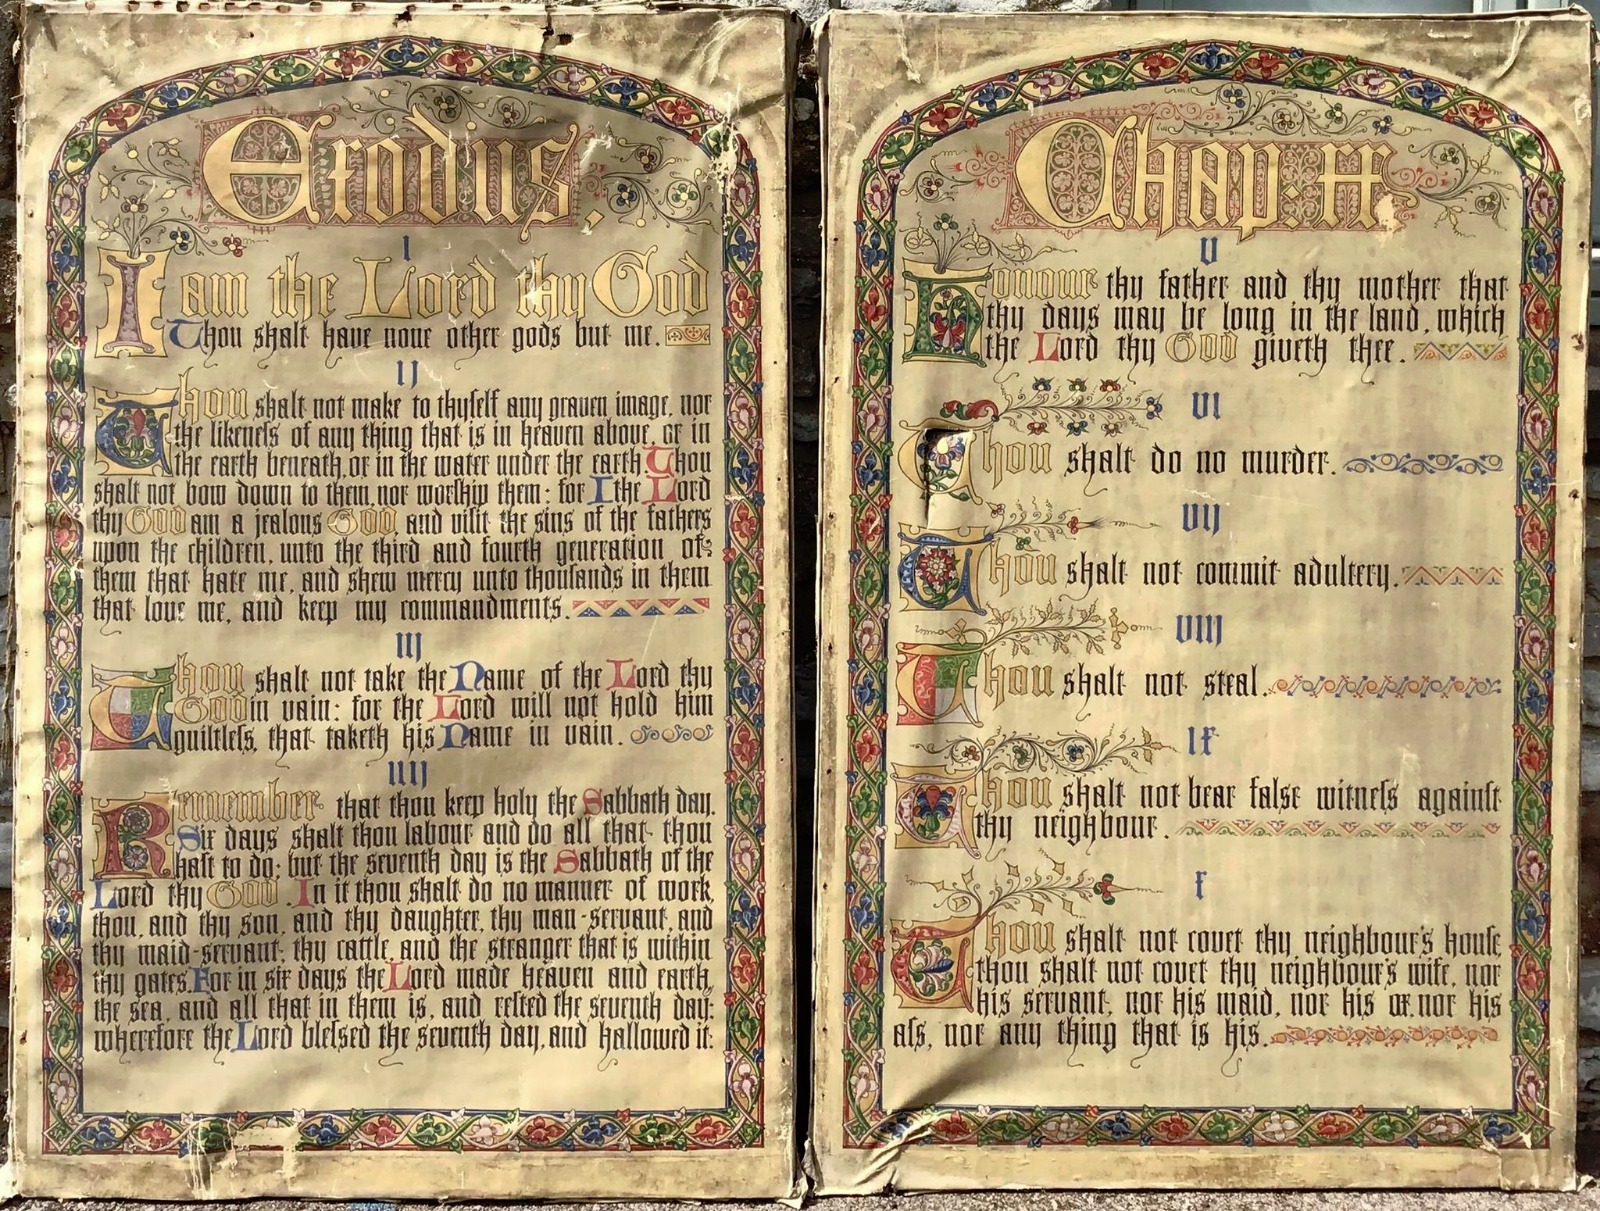 Exodus.
I
I am the Lord thy God
Thou shalt have none other gods but me.
IJ
Thou shalt not make to thyself any graven image, nor
the likeneſs of any thing that is in heaven above, or in
the earth beneath, or in the water under the earth. Thou
shalt not bow down to them, nor worship them: for I the Lord
thy GOD am a jealous GOD, and visit the sins of the fathers
upon the children, unto the third and fourth generation of
them that hate me, and shew mercy unto thousands in them
that love me, and keep my commandments.
IIJ
Thou shalt not take the Name of the Lord thy
GOD in vain: for the Lord will not hold him
guiltleſs, that taketh his Name in vain.
IIIJ
Remember that thou keep holy the Sabbath day.
Six days shalt thou labour and do all that thou
hast to do; but the seventh day is the Sabbath of the
Lord thy GOD. In it thou shalt do no manner of work,
thou, and thy son, and thy daughter, thy man-servant, and
thy maid-servant, thy cattle, and the stranger that is within
thy gates. For in six days the Lord made heaven and earth,
the sea, and all that in them is, and rested the seventh day:
wherefore the Lord blessed the seventh day, and hallowed it:
Chap: xx
V
Honour thy father and thy mother that
thy days may be long in the land, which
the Lord thy GOD giveth thee.
VI
Thou shalt do no murder.
VIJ
Thou shalt not commit adultery.
VIIJ
Thou shalt not steal.
IX
Thou shalt not bear false witneſs against
thy neighbour.
X
Thou shalt not covet thy neighbour's house,
thou shalt not covet thy neighbour's wife, nor
his servant, nor his maid, nor his ox, nor his
aſs, nor any thing that is his.